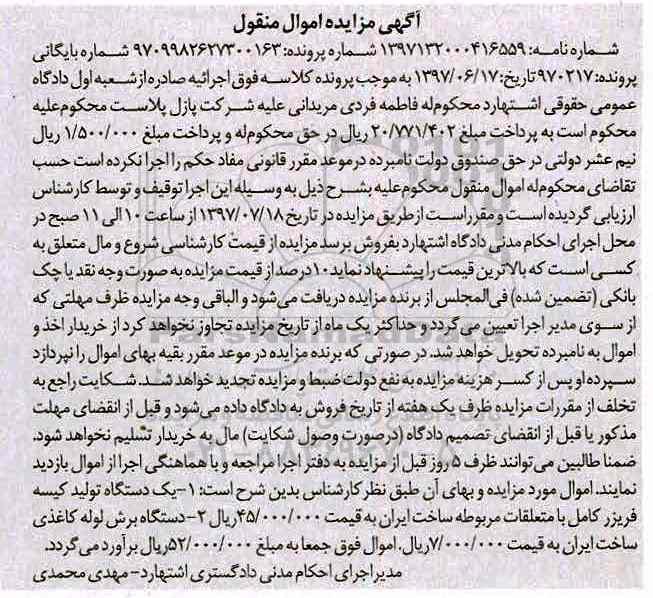 آگهی مزایده اموال منقول
شماره نامه: ۱۳۹۷۱۳۲۰۰۰۴۱۶۵۵۹ شماره پرونده: ۹۷۰۹۹۸۲۶۲۷۳۰۰۱۶۳ شماره بایگانی
پرونده: ۹۷۰۲۱۷ تاریخ: ۱۳۹۷/۰۶/۱۷ به موجب پرونده کلاسه فوق اجرائیه صادره از شعبه اول دادگاه
عمومی حقوقی اشتهارد محکوم‌له فاطمه فردی مریدانی علیه شرکت پازل پلاست محکوم‌علیه
محکوم است به پرداخت مبلغ ۲۰/۷۷۱/۴۰۲ ریال در حق محکوم‌له و پرداخت مبلغ ۱/۵۰۰/۰۰۰ ریال
نیم عشر دولتی در حق صندوق دولت نامبرده درموعد مقرر قانونی مفاد حکم را اجرا نکرده است حسب
تقاضای محکوم‌له اموال منقول محکوم‌علیه بشرح ذیل به وسیله این اجرا توقیف و توسط کارشناس
ارزیابی گردیده است و مقرر است از طریق مزایده در تاریخ ۱۳۹۷/۰۷/۱۸ از ساعت ۱۰ الی ۱۱ صبح در
محل اجرای احکام مدنی دادگاه اشتهارد بفروش برسد مزایده از قیمت کارشناسی شروع و مال متعلق به
کسی است که بالاترین قیمت را پیشنهاد نماید ۱۰درصد از قیمت مزایده به صورت وجه نقد یا چک
بانکی (تضمین شده) فی‌المجلس از برنده مزایده دریافت می‌شود و الباقی وجه مزایده ظرف مهلتی که
از سوی مدیر اجرا تعیین می‌گردد و حداکثر یک ماه از تاریخ مزایده تجاوز نخواهد کرد از خریدار اخذ و
اموال به نامبرده تحویل خواهد شد. در صورتی که برنده مزایده در موعد مقرر بقیه بهای اموال را نپردازد
سپرده او پس از کسر هزینه مزایده به نفع دولت ضبط و مزایده تجدید خواهد شد. شکایت راجع به
تخلف از مقررات مزایده ظرف یک هفته از تاریخ فروش به دادگاه داده می‌شود و قبل از انقضای مهلت
مذکور یا قبل از انقضای تصمیم دادگاه (درصورت وصول شکایت) مال به خریدار تسلیم نخواهد شود.
ضمنا طالبین می‌توانند ظرف ۵ روز قبل از مزایده به دفتر اجرا مراجعه و با هماهنگی اجرا از اموال بازدید
نمایند. اموال مورد مزایده و بهای آن طبق نظر کارشناس بدین شرح است: ۱-یک دستگاه تولید کیسه
فریزر کامل با متعلقات مربوطه ساخت ایران به قیمت ۴۵/۰۰۰/۰۰۰ریال ۲-دستگاه برش لوله کاغذی
ساخت ایران به قیمت ۷/۰۰۰/۰۰۰ریال. اموال فوق جمعا به مبلغ ۵۲/۰۰۰/۰۰۰ریال برآورد می‌گردد.
مدیر اجرای احکام مدنی دادگستری اشتهارد-مهدی محمدی